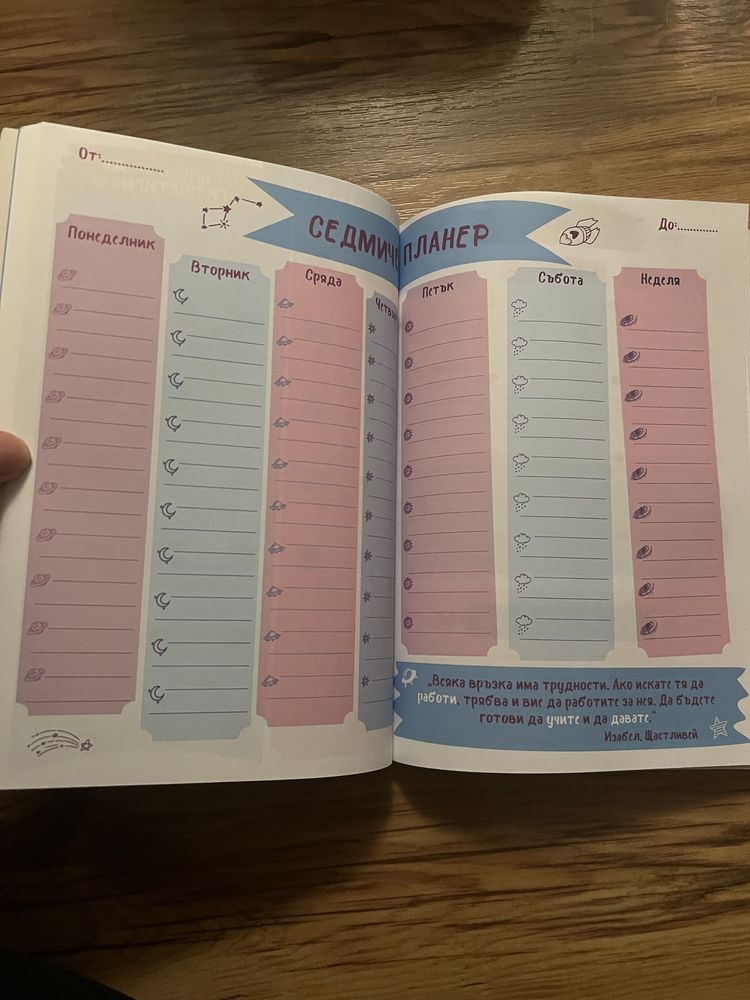 От:.............
СЕДМИЧЕ ПЛАНЕР
До:............
Понеделник
Вторник
Сряда
Четвър
Петък
Събота
Неделя
„Всяка връзка има трудности. Ако искате тя да
работи, трябва и вие да работите за нея. Да бъдете
готови да учите и да давате."
Изабел, Щастливей